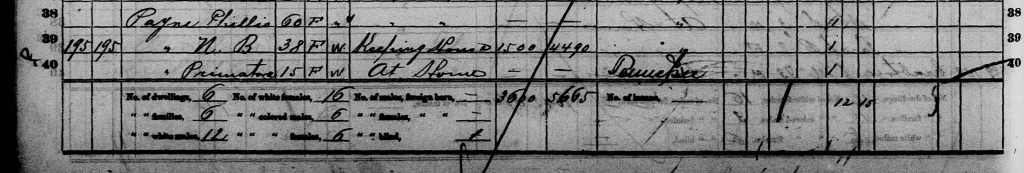 38 Payne Phillis 60 F " " " — — " 1 38
39 195 195 " N. B 38 F W Keeping House 1500 4490 " 1 39
40 " 15 F W At Home — — 1 40
No. of dwellings, 6 No. of white females, 16 No. of males, foreign born, — 3600 5665 No. of insane, — 12 15
" " families, 6 " " colored males, 6 " " females, " " —
" " white males, 12 " " " females, 6 " " blind,